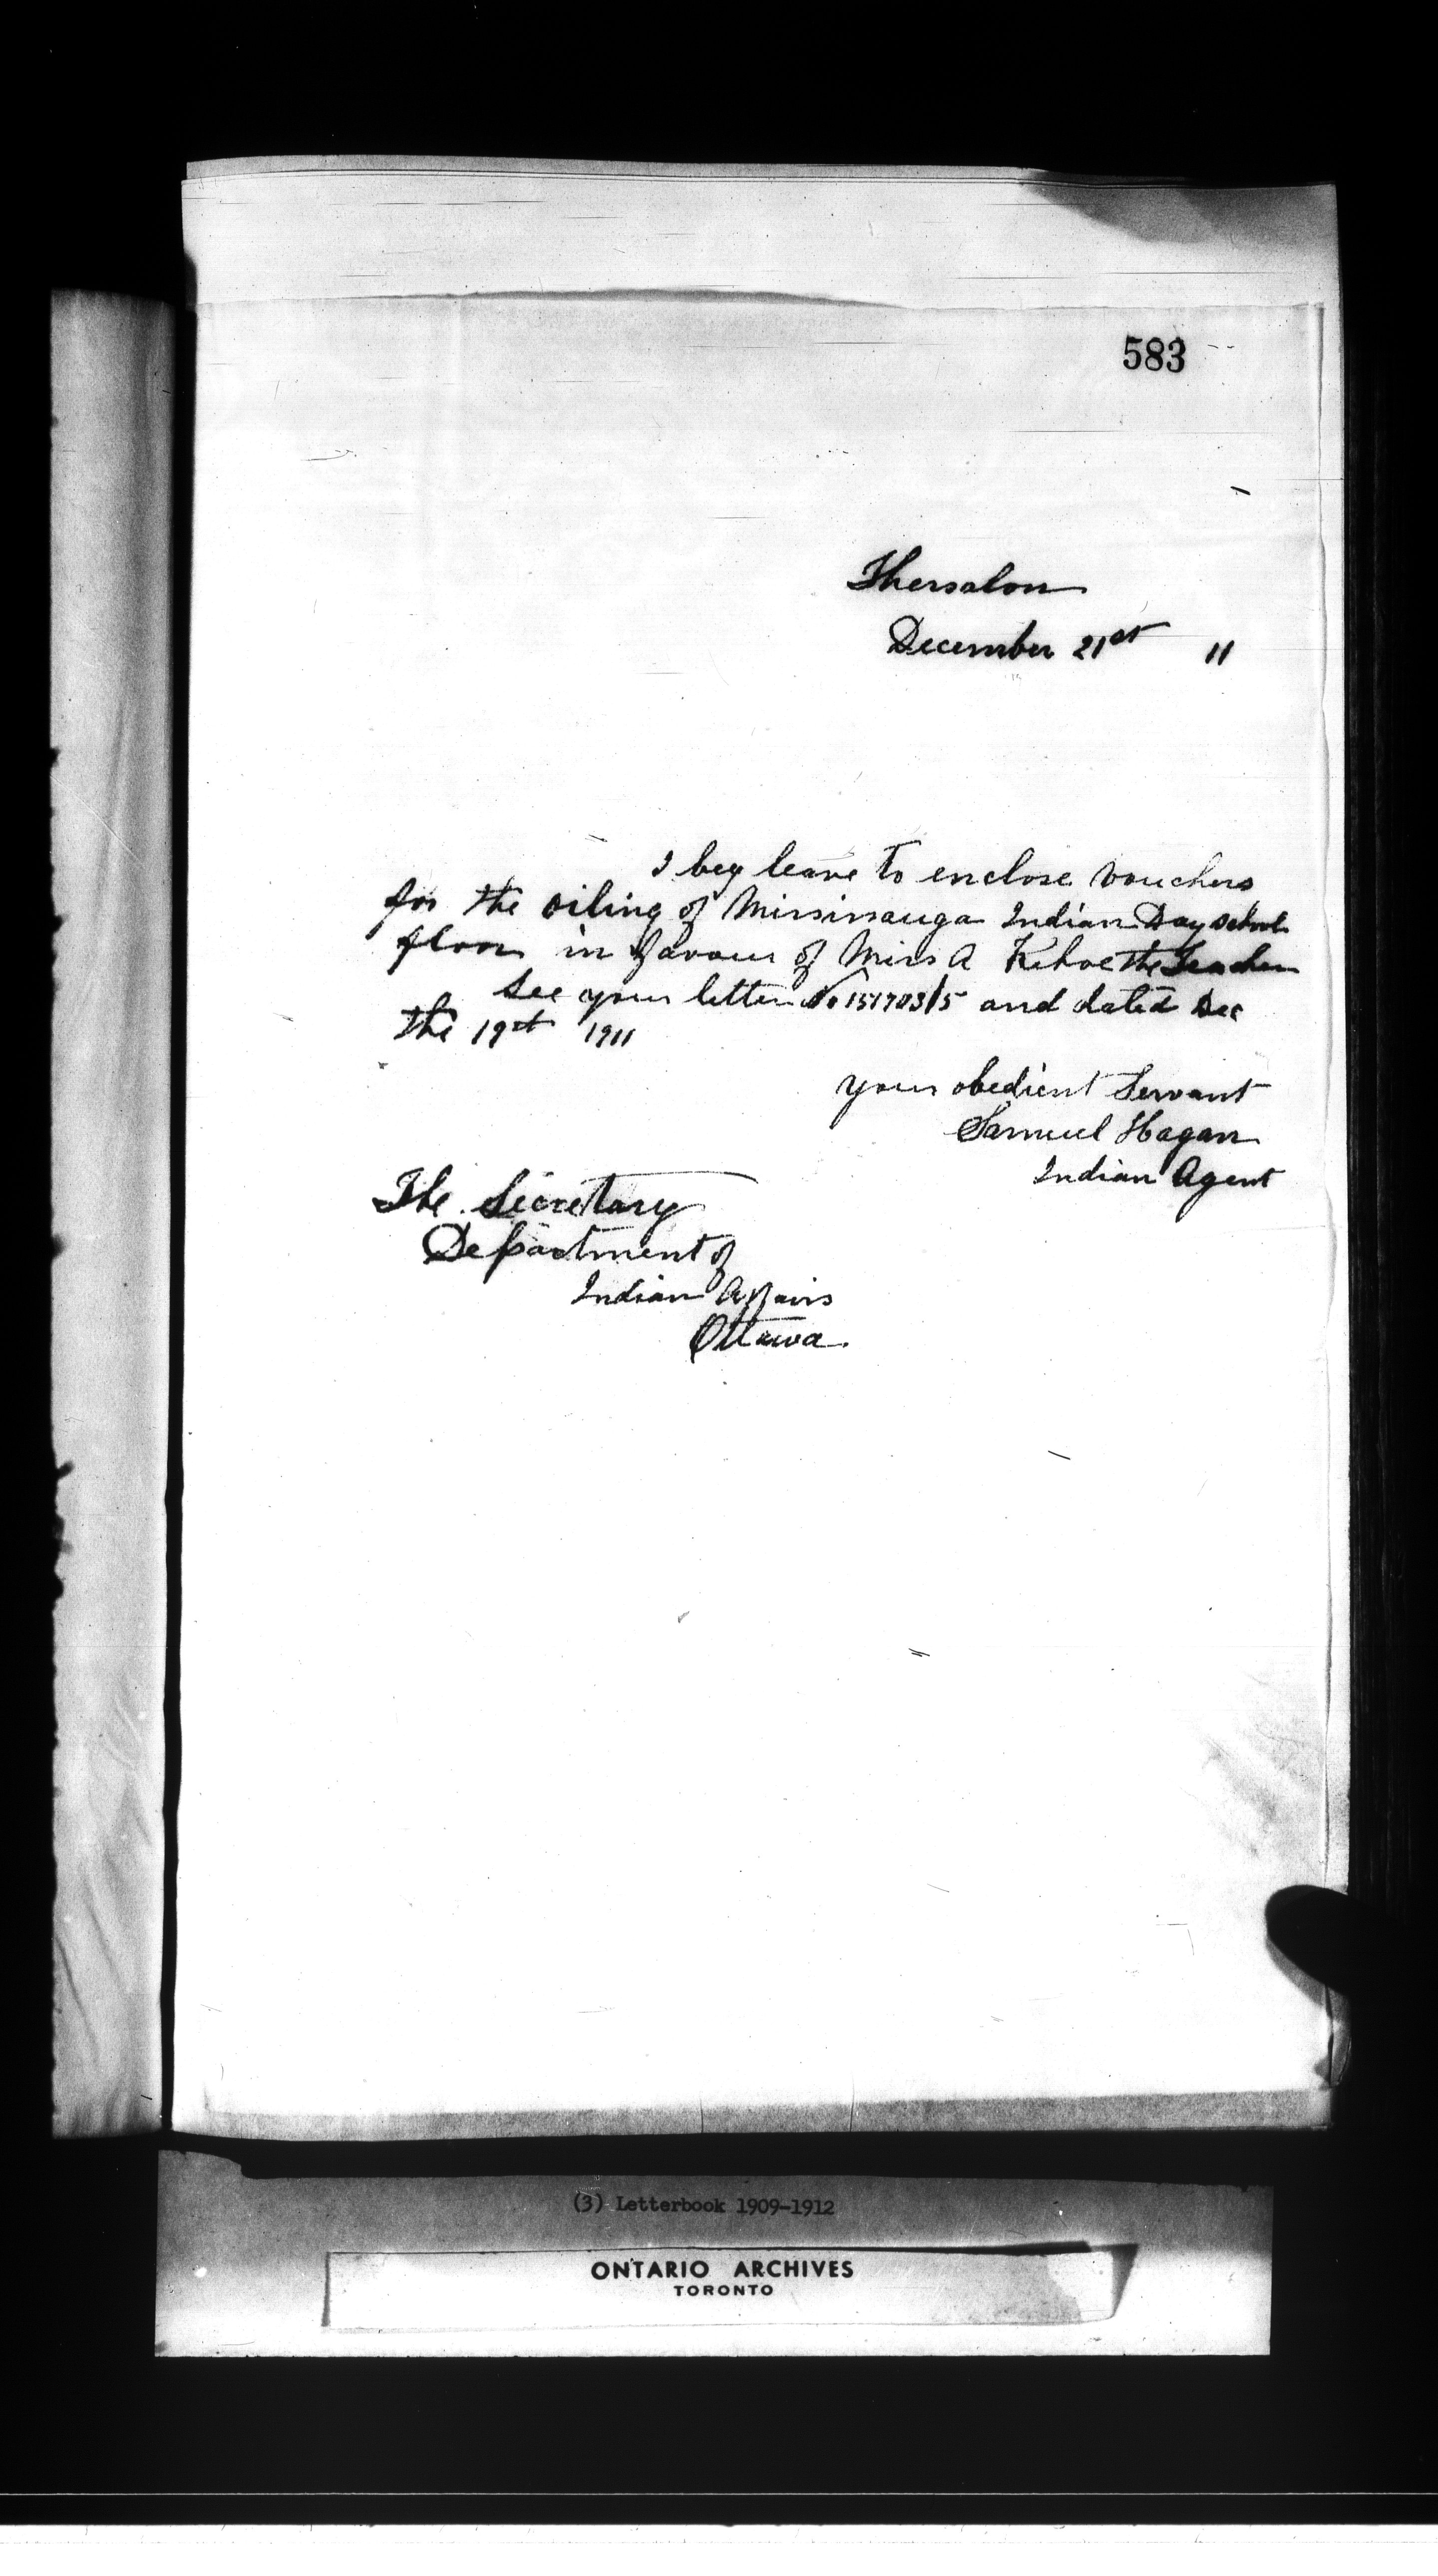 583
Thersalon
December 21st 11
I beg leave to enclose vouchers
for the oiling of Mississauga Indian Day School
floor in favour of Miss A Kehoe the Teacher
See your letter No 151703/5 and dated Dec
the 19st 1911
your obedient Servant
Samuel Hagan
Indian Agent
The Secretary
Department of
Indian Affairs
Ottawa
(3) Letterbook 1909-1912
ONTARIO ARCHIVES
TORONTO